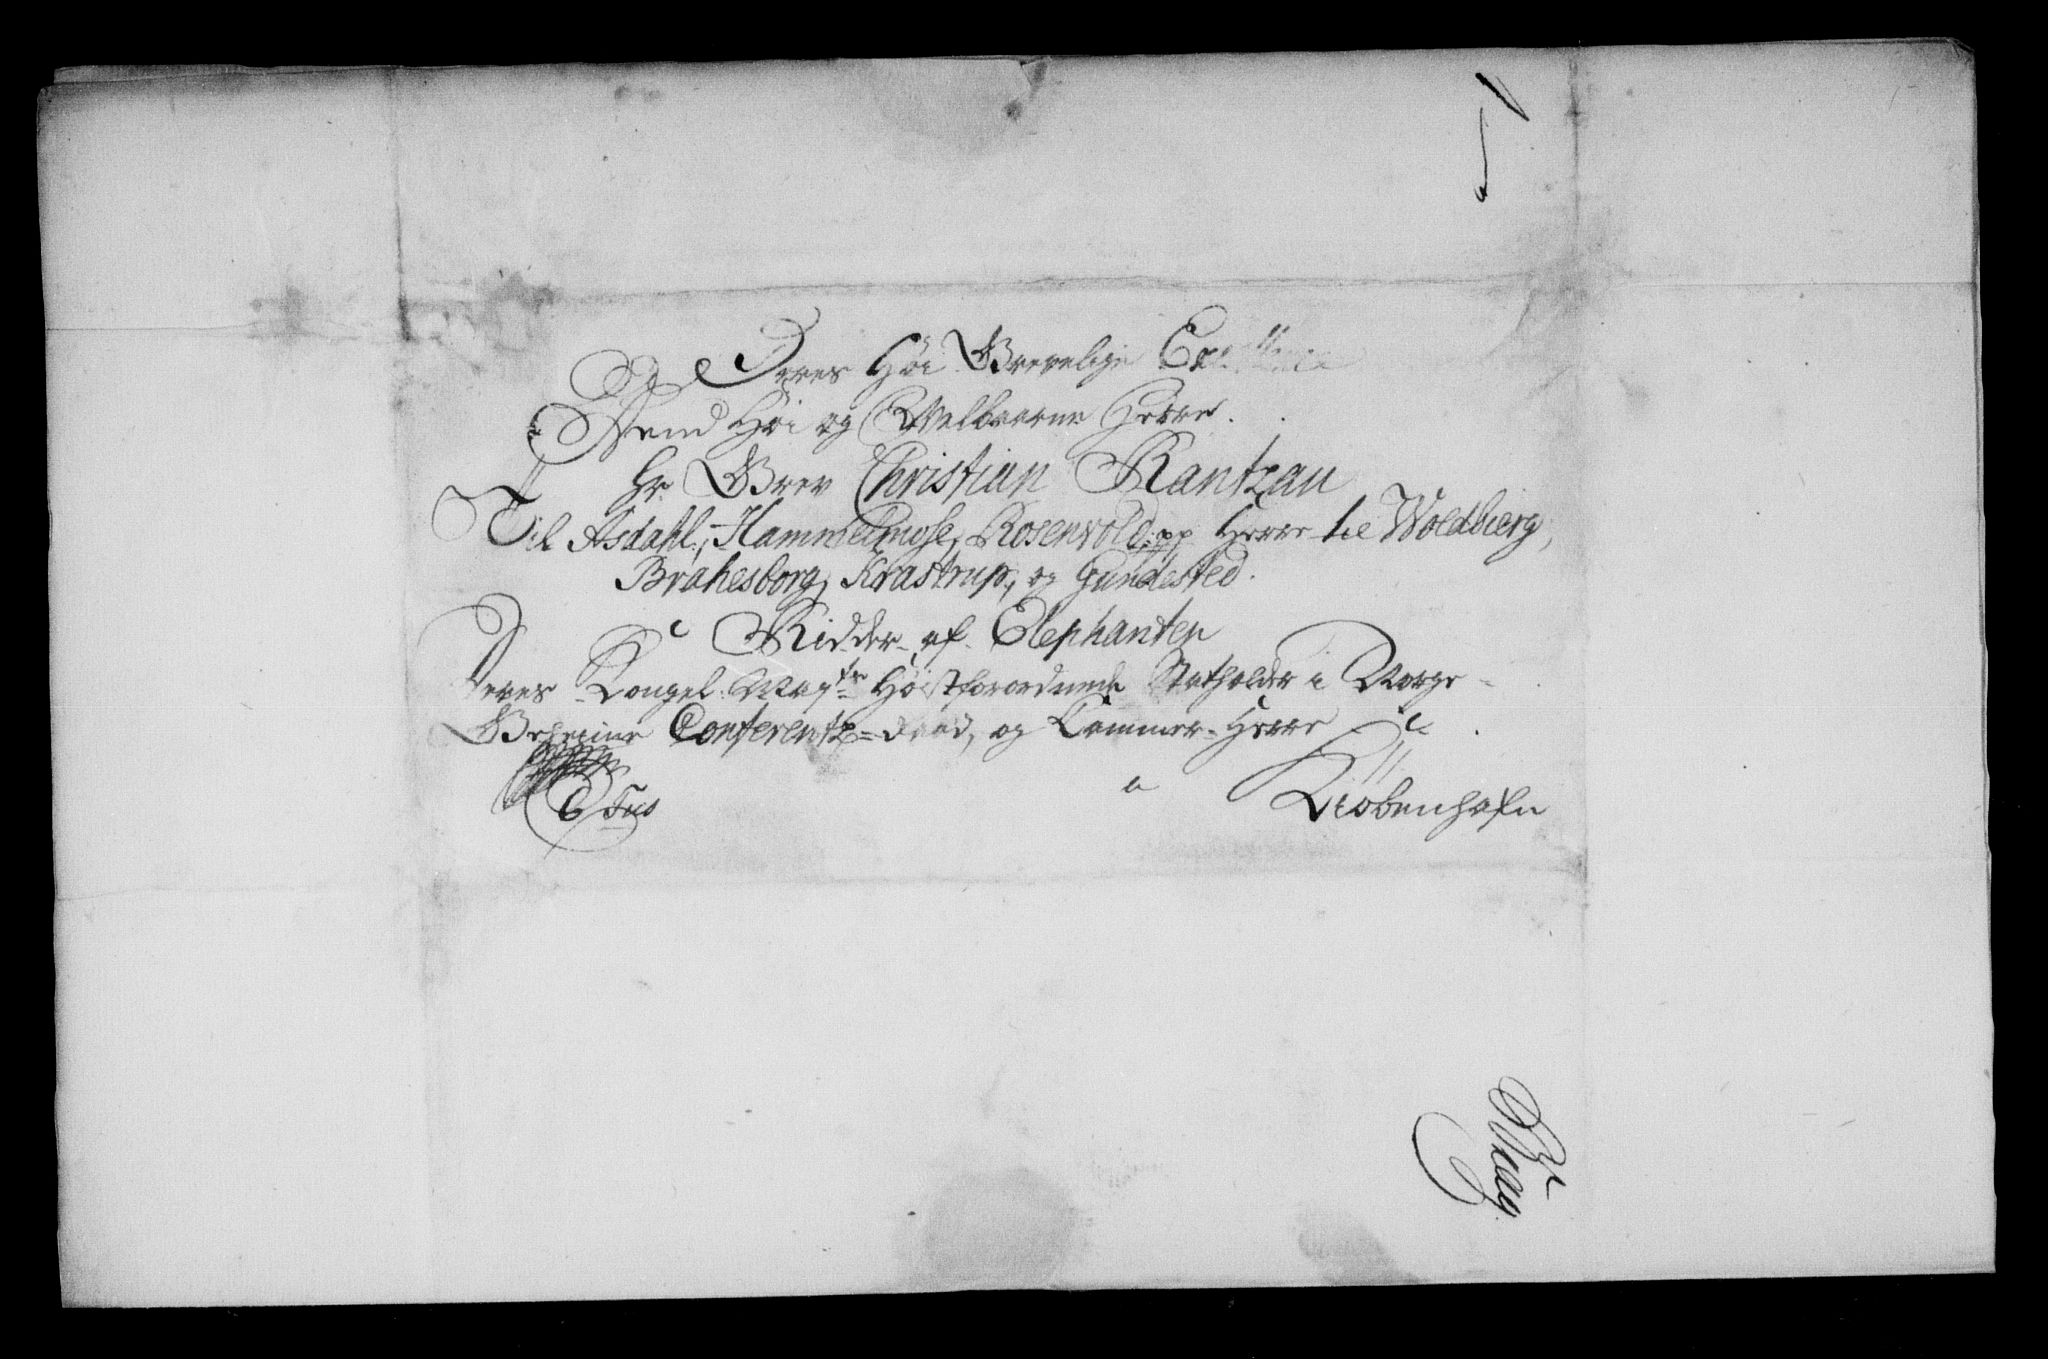 Deres Høi Grevelige Excellence
Høi og Welbaarne Herre.
Hr. Grev Christian Rantzau
Til Asdahl, Hammelmose, Rosenvold pp Herre til Woldbierg,
Brahesborg, Krastrup, og Gundested.
Ridder af Elephanten
Deres Kongel: May:ts Høistforordnede Statholder i Norge
Geheime Conferentz=Raad, og Cammer-Herre
a
Kiøbenhafn